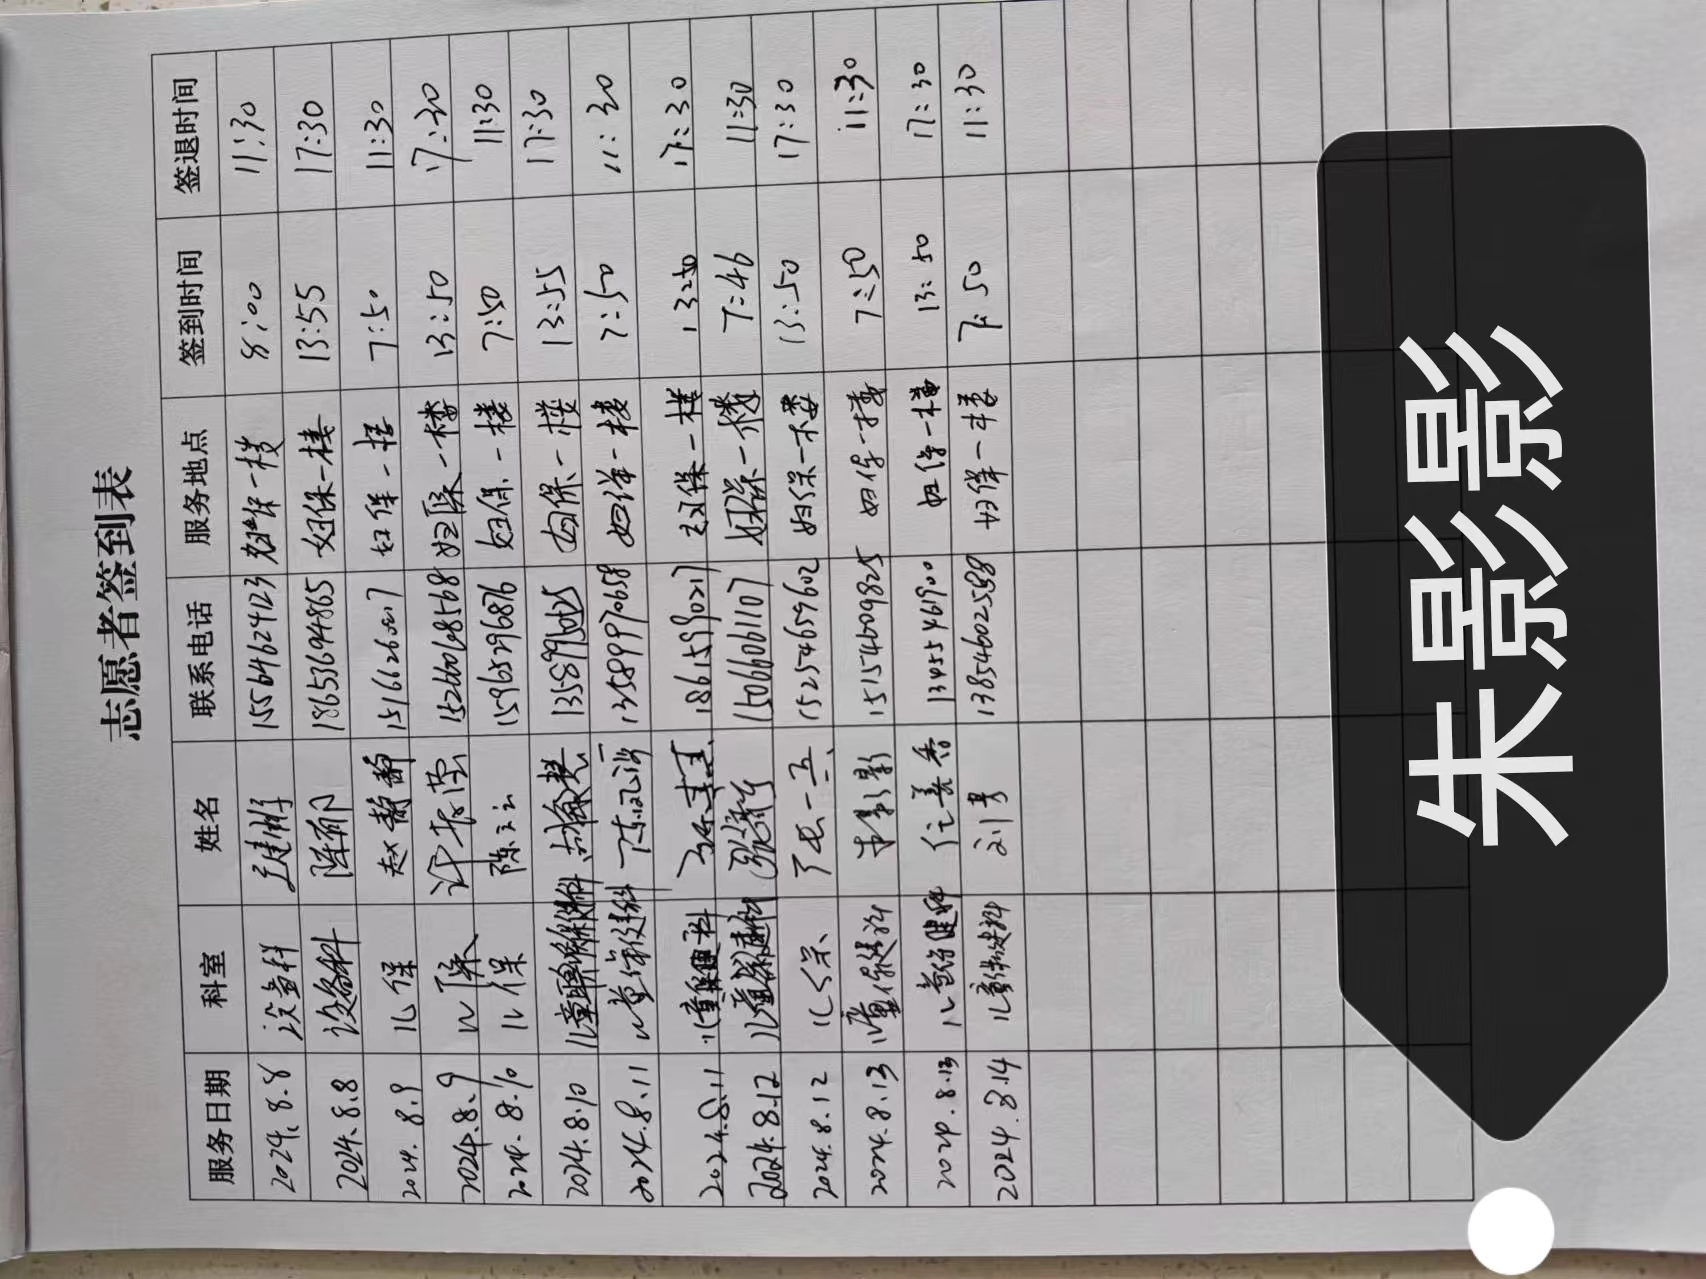 志愿者签到表
服务日期 科室 姓名 联系电话 服务地点 签到时间 签退时间
2024.8.8 设备科 15646624123 妇保一楼 8:00 11:30
2024.8.8 设备科 陈郁 18653694865 妇保一楼 13:55 17:30
2024.8.9 儿保 赵静静 妇保一楼 7:50 11:30
2024.8.9 儿保 许长莹 15266068568 妇保一楼 13:50 17:30
2024.8.10 儿保 陈云云 15965296876 妇保一楼 7:50 11:30
2024.8.10 儿童保健科 妇保一楼 13:55 17:30
2024.8.11 儿童保健科 13589970658 妇保一楼 7:50 11:30
2024.8.11 儿童保健科 18615990217 妇保一楼 13:50 17:30
2024.8.12 儿童保健科 15066061107 妇保一楼 7:46 11:30
2024.8.12 儿保 15254659602 妇保一楼 13:50 17:30
2024.8.13 儿童保健科 朱影影 15154609825 妇保一楼 7:50 11:30
2024.8.13 儿童保健科 任美香 13455461900 妇保一楼 13:50 17:30
2024.8.14 儿童保健科 13854602588 妇保一楼 7:50 11:30
朱影影